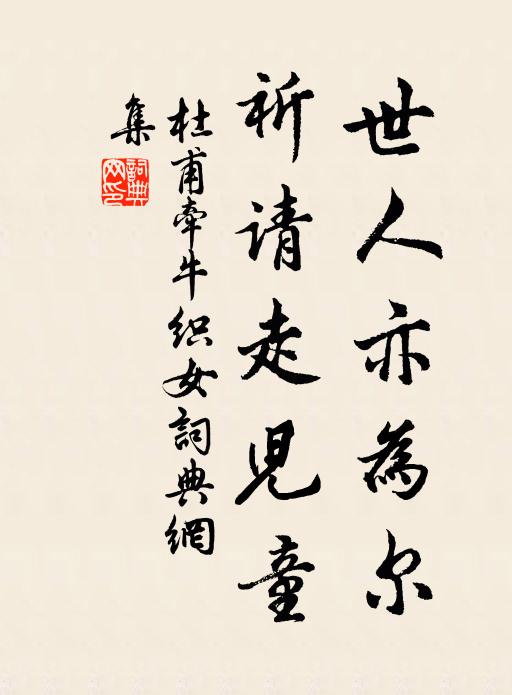 世人亦為尔
祈请走児童
杜甫牽牛织女詞典網
集
詞典网印